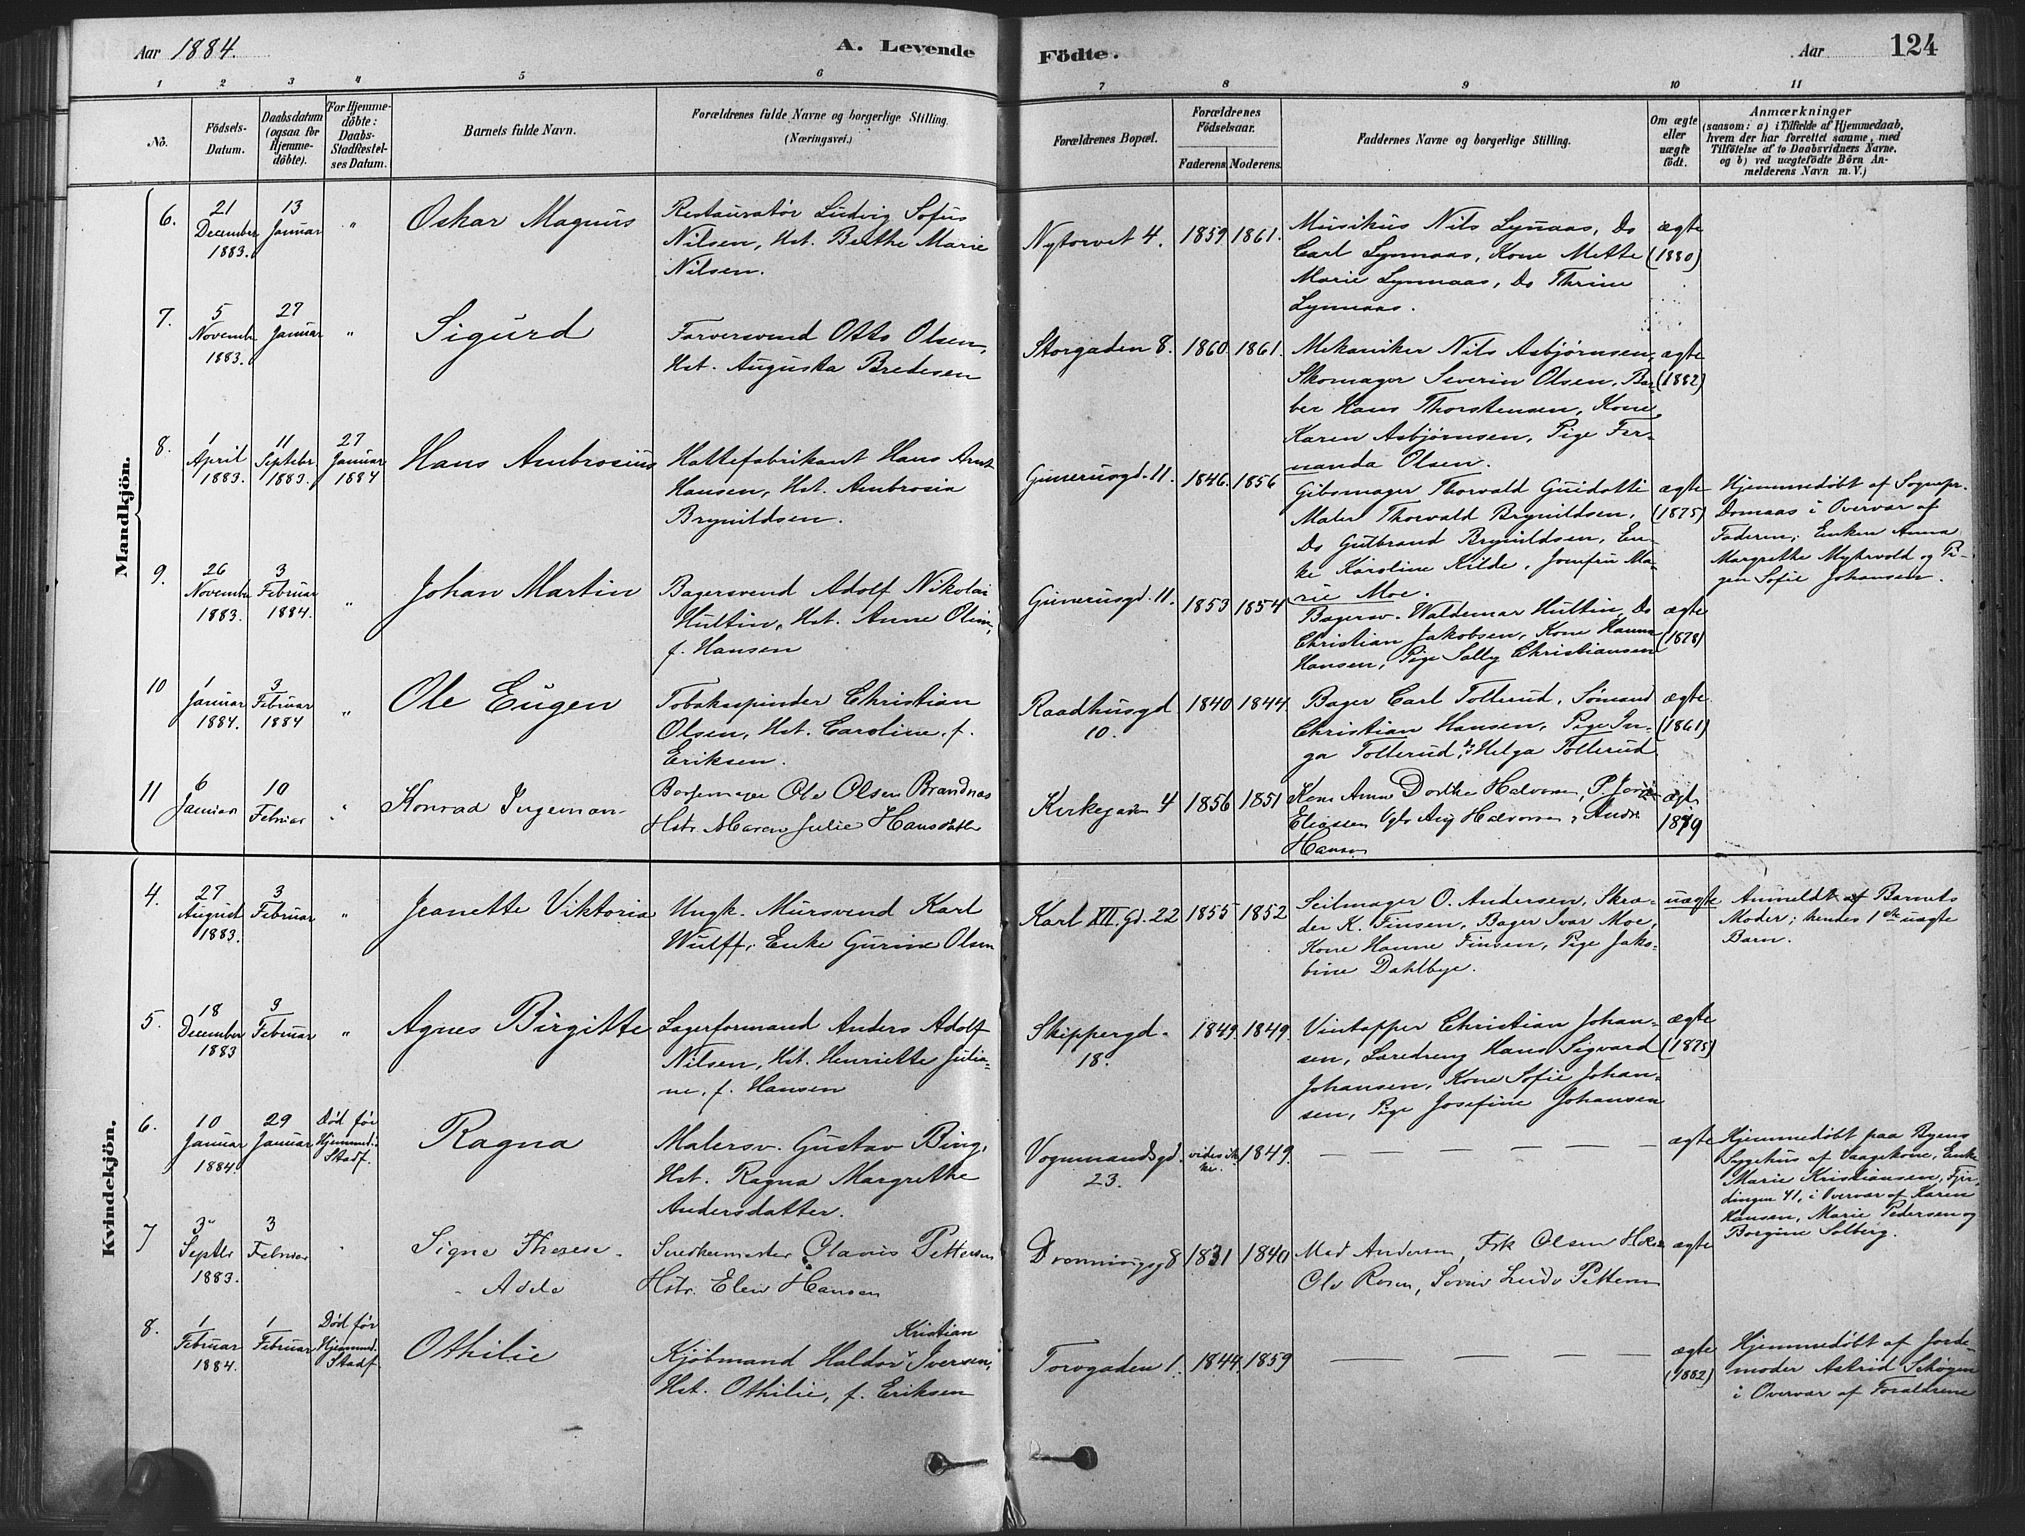 Aar 1884.
A. Levende Födte.
Aar
124
1 2 3 4 5 6 7 8 9 10 11
No.
Födsels-
Datum.
Daabsdatum
(ogsaa for
Hjemme-
döbte).
For Hjemme-
döbte:
Daabs-
Stadfæstel-
ses Datum.
Barnets fulde Navn.
Forældrenes fulde Navne og borgerlige Stilling.
(Næringsvei.)
Forældrenes Bopæl.
Forældrenes
Födselsaar.
Faderens.
Moderens.
Faddernes Navne og borgerlige Stilling.
Om ægte
eller
uægte
födt.
Anmærkninger
(saasom: a) i Tilfælde af Hjemmedaab,
hvem der har forrettet samme, med
Tilföielse af to Daabsvidners Navne,
og b) ved uægtefödte Börn An-
melderens Navn m. V.)
Mandkjön.
6.
21
December
1883.
13
Januar
"
Oskar Magnus
Restauratør Ludvig Sofus
Nilsen, Hst. Berthe Marie
Nilsen.
Nytorvet 4.
1859
1861.
Musikus Nils Lynaas, Do
Carl Lynnaas, Kone Mette
Marie Lynnaas, Do Thrine
Lynnaas.
ægte
(1880)
7.
5
Novembr
1883.
27
Januar
"
Sigurd
Farversvend Otto Olsen,
Hst. Auguska Bredesen
Storgaden 8.
1860
1861.
Mekaniker Nils Asbjørnsen,
Skomager Severin Olsen, Bar-
ber Hans Thorstensen, Kone
Karen Asbjørnsen, Pige Fer-
nanda Olsen.
ægte
(1882)
8.
1
April
1883.
11
Septebr
1883.
27
Januar
1884
Hans Ambrosius
Hattefabrikant Hans Arnt
Hansen, Hst. Ambrosia
Brynildsen.
Gunerusgd. 11.
1846.
1856
Gibsmager Thorvald Guidotti
Maler Thorvald Brynildsen,
Do Gulbrand Brynildsen, En-
ke Karoline Kilde, Jomfru Ma-
rie Moe.
ægte
(1875)
Hjemmedøbt af Sognepr.
Domaas i Overvær af
Faderen; Enken Anna
Margrethe Myhrvold og Pi-
gen Sofie Johansen.
9.
26
Novembr
1883.
3
Februar
1884.
"
Johan Martin
Bagersvend Adolf Nikolai
Hultin, Hst. Anne Oline,
f. Hansen
Gunerusgd. 11.
1853
1854
Bagersv. Waldemar Hultin, Do
Christian Jakobsen, Kone Hanna
Hansen, Pige Sally Christiansen
ægte
(1878)
10
1
Januar
1884.
3
Februar
1884
"
Ole Eugen
Tobakspinder Christian
Olsen, Hst. Caroline, f.
Eriksen.
Raadhusgd
10.
1840
1844
Bager Carl Tollerud, Sømand
Christian Hansen, Pige In-
ga Tollerud, Helga Tollerud
ægte
(1861)
11
6
Januar
10
Februar
"
Konrad Ingeman
Ole Olsen Brandnæs
Hstr. Maren Julie Hansdatter
Kirkegaden 4
1856
1851
Kone Anne Dorthe Halvorsen, P.
Eliassen Halvorsen, Andr
Hansen
ægte
1879
Kvindekjön.
4.
27
August
1883.
3
Februar
"
Jeanette Viktoria
Ungk. Mursvend Karl
Wulff, Enke Gurine Olsen
Karl XII. Gd. 22
1855
1852
Seilmager O. Andersen, Skræd-
der K. Finsen, Bager Ivar Moe,
Kone Hanne Finsen, Pige Jako-
bine Dahlbye.
uægte
Anmeldt af Barnets
Moder; hendes 1ste uægte
Barn.
5.
18
December
1883
3
Februar
"
Agnes Birgitte
Lagerformand Anders Adolf
Nilsen, Hst. Henriette Julia-
ne, f. Hansen
Skippergd.
18.
1849.
1849.
Vintapper Christian Johan-
sen, Læredreng Hans Sigvard
Johansen, Kone Sofie Johan-
sen, Pige Josefine Johansen
ægte
(1875)
6.
10
Januar
1884.
29
Januar
Død før
Hjemmed.
Stadf.
Ragna
Malersv. Gustav Bing,
Hst. Ragna Margrethe
Andersdatter.
Vognmandsgd.
23.
1849.
ægte
Hjemmedøbt paa Byens
Sygehus af Vaagekone, Enke
Marie Kristiansen, Fjer-
dingen 41, i Overvær af Karen
Hansen, Marie Pedersen og
Borgine Solberg.
7
3
Septbr
1883.
3
Februar
"
Signe Therese
Adele
Snedkermester Olavus Pettersen
Hstr. Elen Hansen
Dronningsg 8
1831
1840
Mad Andersen, Frk Olsen
Ole Rosen, Pettersen
ægte
8.
1
Februar
1884.
1
Februar
Død før
Hjemmed.
Stadf.
Othilie
Kristian
Kjøbmand Haldor Iversen,
Hst. Othilie, f. Eriksen
Torvgaden 1.
1844.
1859
ægte
(1882)
Hjemmedøbt af Jorde-
moder Astrid Schøgen
i Overvær af Forældrene